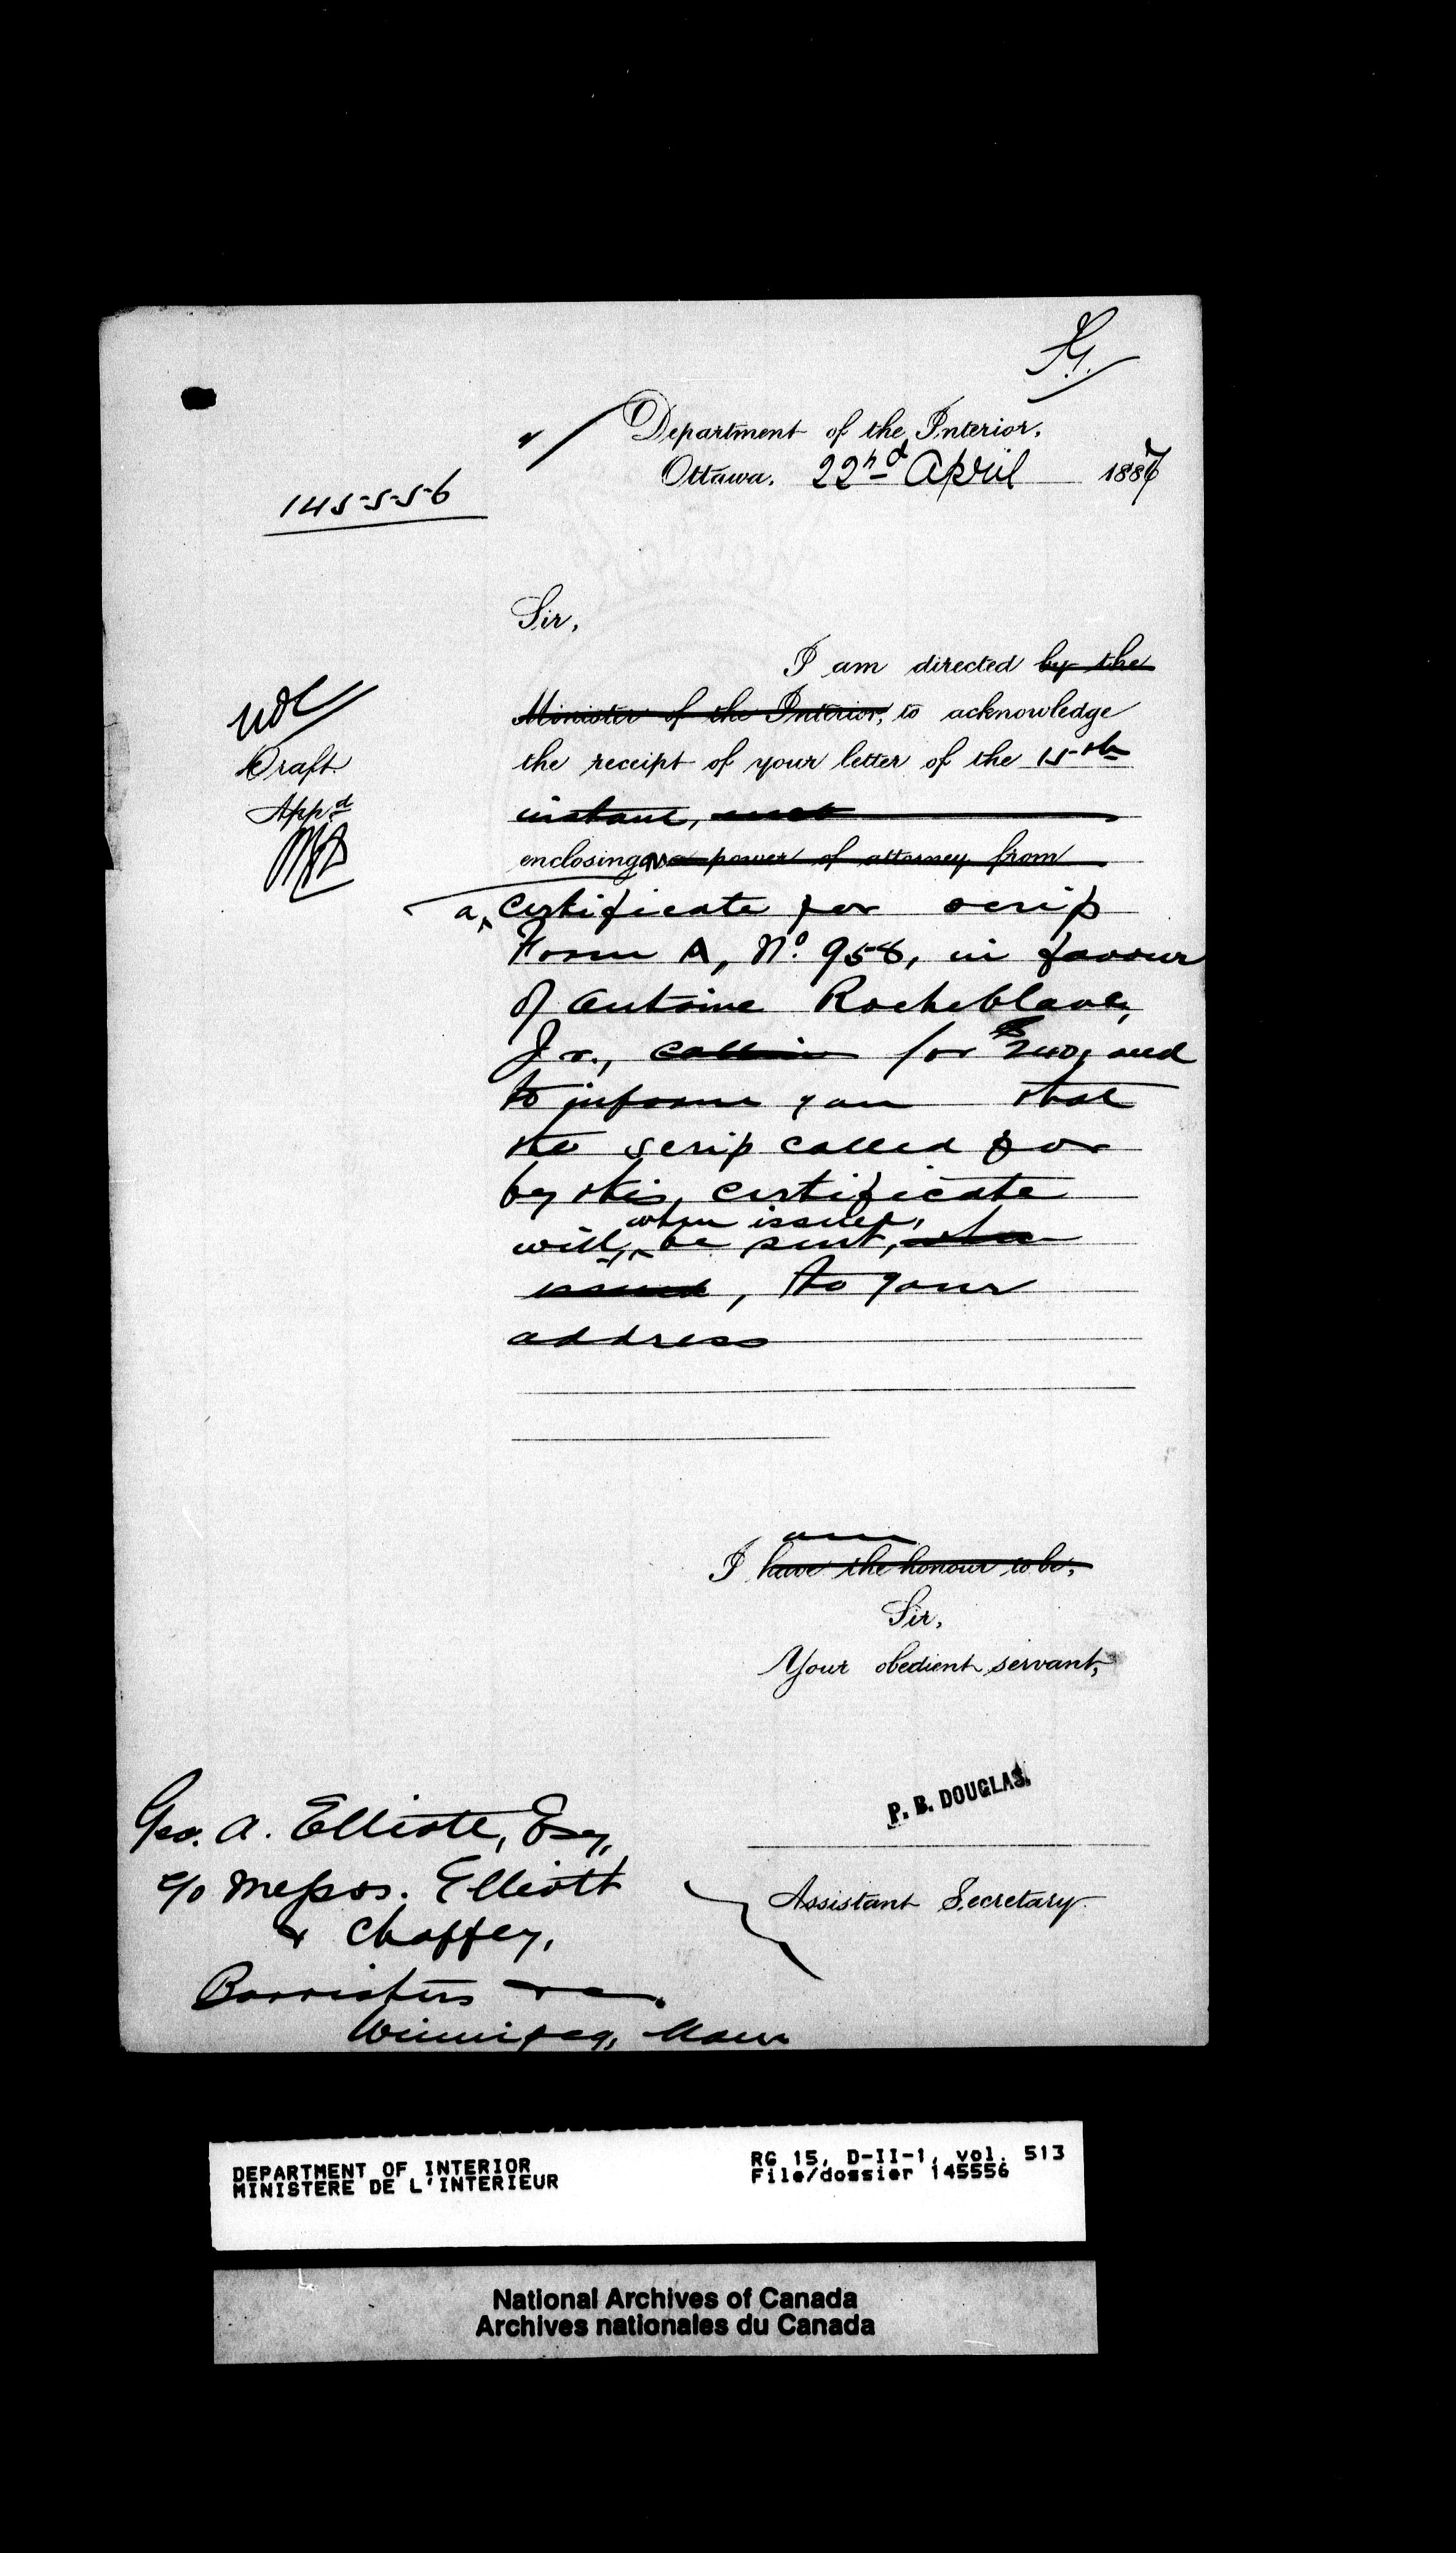 Department of the Interior.
Ottawa. 22nd April 1887
145556
Sir,
I am directed by the
Minister of the Interior, to acknowledge
the receipt of your letter of the 15th
instant,
Draft
App.d
enclosing a power of attorney from
a certificate for scrip
Form A, No. 958, in favour
of Antoine Rocheblave,
Jr., calling for $240, and
to inform you that
the scrip called for
by this certificate
when issued,
will, be sent, when
issued, to your
address
am
I have the honour to be,
Sir,
Your obedient servant,
P. B. DOUGLAS.
Assistant Secretary.
Geo. A. Elliott, Esq,
c/o Messrs. Elliott
& Chaffey,
Barristers &c.
Winnipeg, Man
DEPARTMENT OF INTERIOR
MINISTERE DE L'INTERIEUR
RG 15, D-II-1, vol. 513
File/dossier 145556
National Archives of Canada
Archives nationales du Canada